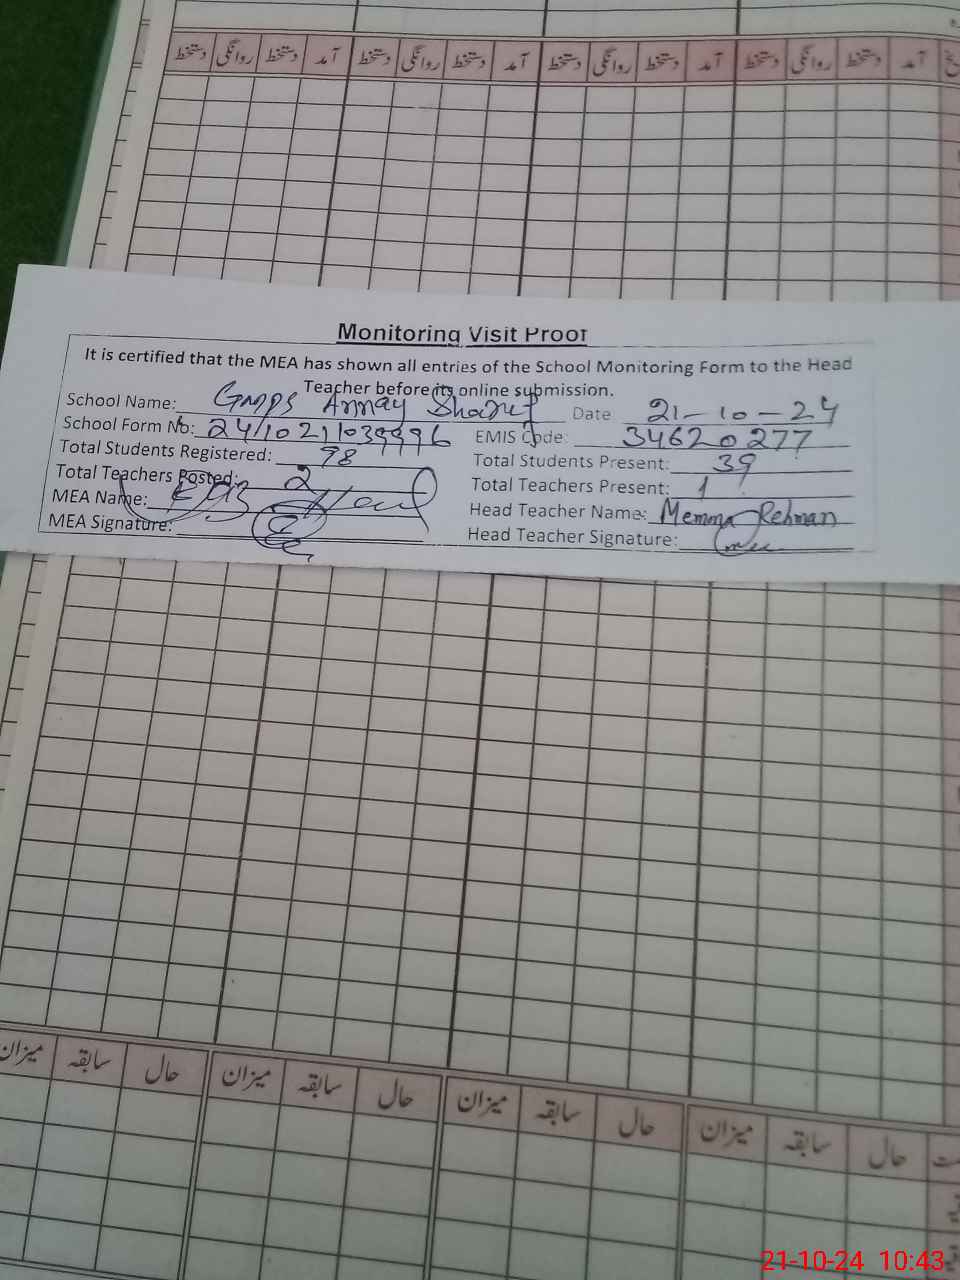 دستخط روانگی دستخط آمد دستخط روانگی دستخط آمد دستخط روانگی دستخط آمد دستخط روانگی دستخط آمد
Monitoring Visit Proof
It is certified that the MEA has shown all entries of the School Monitoring Form to the Head
Teacher before its online submission.
School Name: GMPS Annay Sharif Date 21-10-24
School Form No: 2410211039996 EMIS Code: 34620277
Total Students Registered: 98 Total Students Present: 39
Total Teachers Posted: 2 Total Teachers Present: 1
MEA Name: Head Teacher Name: Memma Rehman
MEA Signature: Head Teacher Signature:
میزان سابقہ حال میزان سابقہ حال میزان سابقہ حال میزان سابقہ حال
21-10-24 10:43